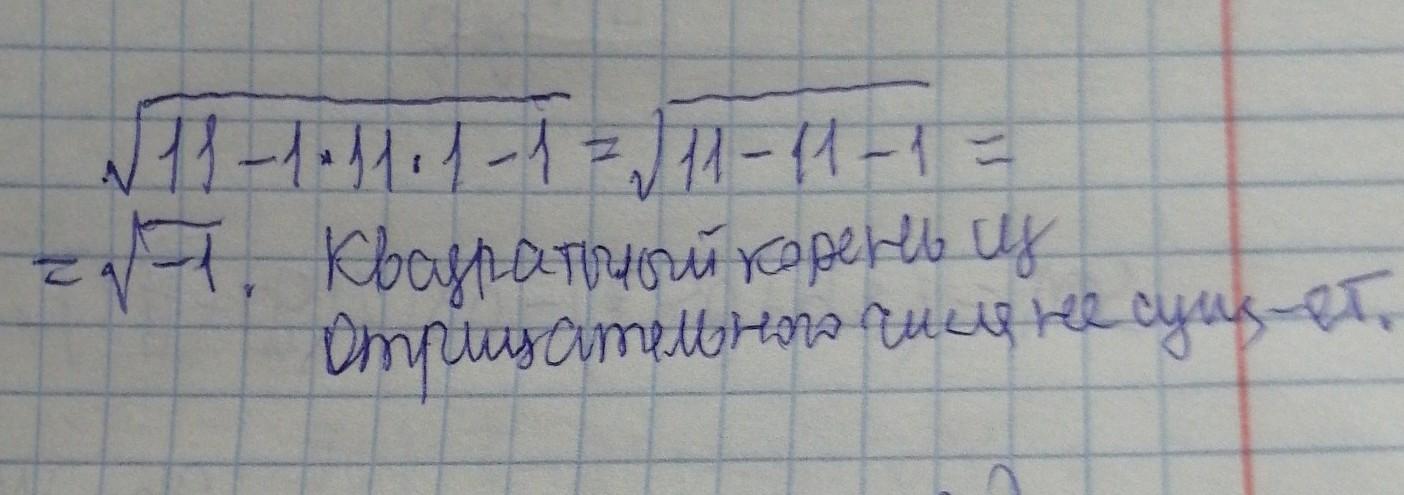 √11-1·11·1-1 = √11-11-1 =
= √-1. Квадратный корень из
отрицательного числа не сущ-ет.